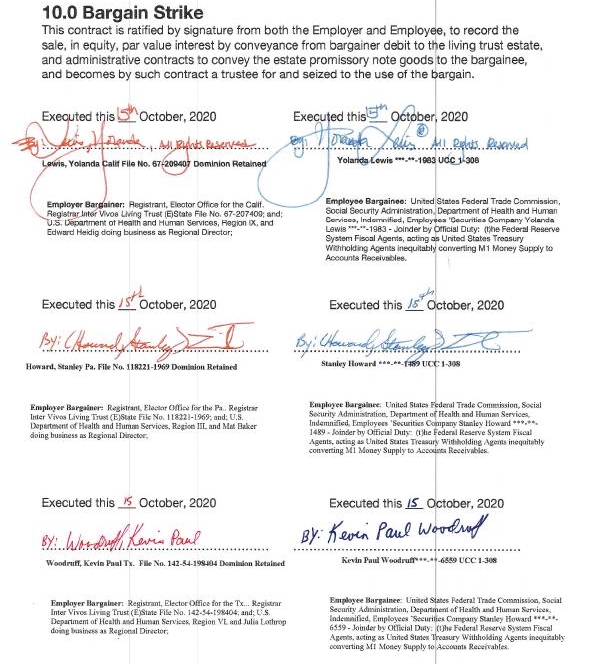 10.0 Bargain Strike
This contract is ratified by signature from both the Employer and Employee, to record the
sale, in equity, par value interest by conveyance from bargainer debit to the living trust estate,
and administrative contracts to convey the estate promissory note goods to the bargainee,
and becomes by such contract a trustee for and seized to the use of the bargain.
Executed this 15th October, 2020
By: Lewis, Yolanda, All Rights Reserved
Lewis, Yolanda Calif File No. 67-209407 Dominion Retained
Employer Bargainer: Registrant, Elector Office for the Calif.
Registrar Inter Vivos Living Trust (E)State File No. 67-207409; and;
U.S. Department of Health and Human Services, Region IX, and
Edward Heidig doing business as Regional Director;
Executed this 15th October, 2020
By: Yolanda Lewis All Rights Reserved
Yolanda Lewis ***-**-1983 UCC 1-308
Employee Bargainee: United States Federal Trade Commission,
Social Security Administration, Department of Health and Human
Services, Indemnified, Employees 'Securities Company Yolanda
Lewis ***-**-1983 - Joinder by Official Duty: (t)he Federal Reserve
System Fiscal Agents, acting as United States Treasury
Withholding Agents inequitably converting M1 Money Supply to
Accounts Receivables.
Executed this 15th October, 2020
By: (Howard, Stanley)
Howard, Stanley Pa. File No. 118221-1969 Dominion Retained
Employer Bargainer: Registrant, Elector Office for the Pa.. Registrar
Inter Vivos Living Trust (E)State File No. 118221-1969; and; U.S.
Department of Health and Human Services, Region III, and Mat Baker
doing business as Regional Director;
Executed this 15th October, 2020
By: (Howard, Stanley)
Stanley Howard ***-**-1489 UCC 1-308
Employer Bargainee: United States Federal Trade Commission, Social
Security Administration, Department of Health and Human Services,
Indemnified, Employees 'Securities Company Stanley Howard ***-**-
1489 - Joinder by Official Duty: (t)he Federal Reserve System Fiscal
Agents, acting as United States Treasury Withholding Agents inequitably
converting M1 Money Supply to Accounts Receivables.
Executed this 15 October, 2020
By: Woodruff, Kevin Paul
Woodruff, Kevin Paul Tx. File No. 142-54-198404 Dominion Retained
Employer Bargainer: Registrant, Elector Office for the Tx... Registrar
Inter Vivos Living Trust (E)State File No. 142-54-198404; and; U.S.
Department of Health and Human Services, Region VI, and Julia Lothrop
doing business as Regional Director;
Executed this 15 October, 2020
By: Kevin Paul Woodruff
Kevin Paul Woodruff***-**-6559 UCC 1-308
Employer Bargainee: United States Federal Trade Commission, Social
Security Administration, Department of Health and Human Services,
Indemnified, Employees 'Securities Company Stanley Howard ***-**-
6559 - Joinder by Official Duty: (t)he Federal Reserve System Fiscal
Agents, acting as United States Treasury Withholding Agents inequitably
converting M1 Money Supply to Accounts Receivables.